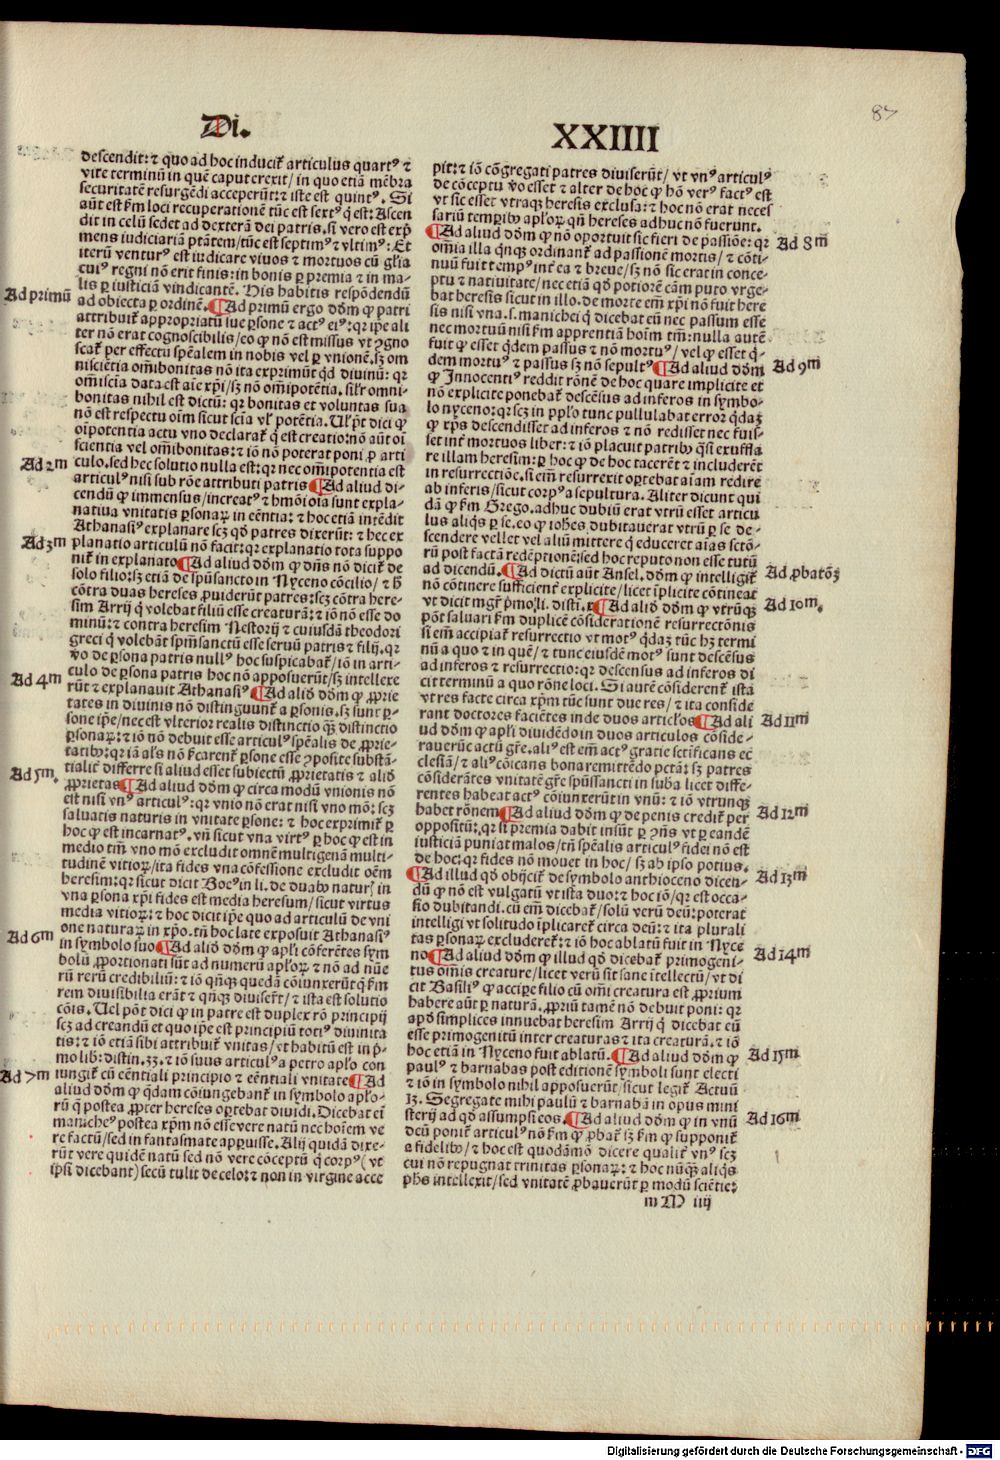 87
Di.
XXIIII
descendit: ⁊ quo ad hoc inducit̄ articulus quartꝰ ⁊
vite terminū in quē caput erexit/ in quo etiā mēbra
securitatē resurgēdi acceperūt: ⁊ iste est quintꝰ. Si
aūt est ẜm loci recuperationē tūc est sextꝰ q̇ est: Ascen
dit in celū sedet ad dexterā dei patris. si vero est exp̄
mens iudiciariā ptātem/tūc est septimꝰ ⁊ vltimꝰ: Et
iterū venturꝰ est iudicare viuos ⁊ mortuos cū gl̄ia
cuiꝰ regni nō erit finis: in bonis ꝑ premia ⁊ in ma-
lis ꝑ iusticiā vindicantē. His habitis respōdendū
Ad primū
ad obiecta ꝑ ordinē. ¶ Ad primū ergo dōm ꝙ patri
attribuit̄ appropriatū siue ꝑsone ⁊ actꝰ eiꝰ: qr ip̄e ali
ter nō erat cognoscibilis/eo ꝙ nō est missus vt ꝯgno
scat̄ per effectu sp̄ealem in nobis vel ꝑ vnionē. sꝫ om
niscientia om̄ibonitas nō ita exprimūt qd̄ diuinū: qr
om̄iscia data est aīe xp̄i/sꝫ nō om̄ipotētia. sil̄r omni-
bonitas nihil est dictū: qr bonitas et voluntas sua
nō est respectu oīm sicut scīa vl̓ potētia. Ul̓ pōt dici ꝙ
oīpotētia actu vno declarat̄ q̇ est creatio: nō aūt oī
scientia vel om̄ibonitas: ⁊ iō nō poterat poni ꝓ arti
Ad 2m
culo. sed hec solutio nulla est: qr nec om̄ipotentia est
articulꝰ nisi sub rōe attributi patris ¶ Ad aliud di-
cendū ꝙ immensus/increatꝰ ⁊ hmōi oīa sunt expla-
natiua vnitatis ꝑsonaꝝ in eēntia: ⁊ hoc etiā intēdit
Athanasiꝰ explanare scꝫ qd̄ patres dixerūt: ⁊ hec ex
Ad 3m
planatio articulū nō facit: qr explanatio tota suppo
nit̄ in explanato ¶ Ad aliud dōm ꝙ dn̄s nō dicit̄ de
solo filio: sꝫ etiā de sp̄usancto in Nyceno cōcilio/ ⁊ h̄
cōtra duas hereses ꝓuiderūt patres: scꝫ cōtra here-
sim Arrij q̇ volebat filiū esse creaturā: ⁊ iō nō esse do
minū: ⁊ contra heresim Nestorij ⁊ cuiusdā theodori
greci q̇ volebāt sp̄msanctū esse seruū patris ⁊ filij. qr
v̄o de ꝑsona patris nullꝰ hoc suspicabat̄/iō in arti-
Ad 4m
culo de ꝑsona patris hoc nō apposuerūt/sꝫ intellexe
rūt ⁊ explanauit Athanasiꝰ ¶ Ad aliō dōm ꝙ ꝓprie
tates in diuinis nō distinguunt̄ a ꝑsonis. sꝫ sunt ꝑ-
sone ip̄e/nec est vlterior realis distinctio qꝫ distinctio
ꝑsonaꝝ: ⁊ iō nō debuit esse articulꝰ sp̄ealis de ꝓprie-
tatibꝰ: qr iā al̓s nō ẜ carent̄ ꝑsone esse ꝯposite substā-
Ad 5m.
tialit̄ differre si aliud esset subiectū ꝓprietatis ⁊ aliō
ꝓprietas ¶ Ad aliud dōm ꝙ circa modū vnionis nō
est nisi vnꝰ articulꝰ: qr vnio nō erat nisi vno mō: scꝫ
saluatis naturis in vnitate ꝑsone: ⁊ hoc exprimit̄ ꝑ
hoc ꝙ est incarnatꝰ. vn̄ sicut vna virtꝰ ꝑ hoc ꝙ est in
medio tm̄ vno mō excludit omnē multigenā multi-
tudinē vitioꝝ/ita fides vna cōfessione excludit oēm
heresim: qr sicut dicit Boeꝰ in li. de duabꝰ naturꝭ in
vna ꝑsona xp̄i fides est media heresum/sicut virtus
media vitioꝝ: ⁊ hoc dicit ip̄e quo ad articulū de vni
one naturaꝝ in xp̄o. tn̄ hoc late exposuit Athanasiꝰ
Ad 6m
in symbolo suo ¶ Ad aliō dōm ꝙ apl̓i cōferētes sym
bolū ꝓportionati sūt ad numerū apl̓oꝝ ⁊ nō ad nūe
rū rerū credibiliū: ⁊ iō qn̄qꝫ quedā cōiunxerūt q̇ ẜm
rem diuisibilia erāt ⁊ qn̄qꝫ diuiser̄t/ ⁊ ista est solutio
cōis. Uel pōt dici ꝙ in patre est duplex rō principij
scꝫ ad creandū et quo ip̄e est principiū totiꝰ diuinita
tis: ⁊ iō etiā sibi attribuit̄ vnitas/ vt habitū est in p̄-
mo lib: distin. 33. ⁊ iō suus articulꝰ a petro apl̓o con
Ad 7m
iungit̄ cū eēntiali principio ⁊ eēntiali vnitate ¶ Ad
aliud dōm ꝙ q̄dam cōiungebant̄ in symbolo apl̓o-
rū q̇ postea ꝓpter hereses oꝑtebat diuidi. Dicebat eī
manicheꝰ postea xp̄m nō esse vere natū nec hoīem ve
re factū/sed in fantasmate apꝑuisse. Alij quidā dixe-
rūt vere quidē natū sed nō vere cōceptū q̇ corpꝰ ( vt
ip̄si dicebant) secū tulit de celo: ⁊ non in virgine acce
pit: ⁊ iō cōgregati patres diuiserūt/ vt vnꝰ articulꝰ
de cōceptu v̄o esset ⁊ alter de hoc ꝙ hō verꝰ factꝰ est
vt sic esset vtraqꝫ heresis exclusa: ⁊ hoc nō erat neces
sariū temꝑibꝰ apl̓oꝝ qn̄ hereses adhuc nō fuerunt.
Ad 8m
¶ Ad aliud dōm ꝙ nō oportuit sic fieri de passiōe: qr
om̄ia illa qn̄qꝫ ordinant̄ ad passionē mortis/ ⁊ cōti-
nuū fuit tempꝰ int̄ ea ⁊ breue/ sꝫ nō sic erat in conce-
ptu ⁊ natiuitate/ nec etiā qd̄ potiorē cām puto vrge-
bat heresis sicut in illo. de morte em̄ xp̄i nō fuit here
sis nisi vna. s. manichei q̇ dicebat eū nec passum esse
nec mortuū nisi ẜm apprentiā hoīm tm̄: nulla autē
fuit ꝙ esset q̄dem passus ⁊ nō mortuꝰ/ vel ꝙ esset q̇-
Ad 9m
dem mortuꝰ ⁊ passus sꝫ nō sepultꝰ ¶ Ad aliud dōm
ꝙ Innocentiꝰ reddit rōnē de hoc quare implicite et
nō explicite ponebat̄ descēsus ad inferos in symbo-
lo nyceno: qr scꝫ in pplo tunc pullulabat error q̇daꝫ
ꝙ xp̄s descendisset ad inferos ⁊ nō redisset nec fuis-
set int̄ mortuos liber: ⁊ iō placuit patribꝰ q̄si exuffla
re illam heresim: ꝑ hoc ꝙ de hoc tacerēt ⁊ includerēt
in resurrectiōe. si em̄ resurrexit oꝑtebat aīam redire
ab inferis/sicut corpꝰ a sepultura. Aliter dicunt qui
dā ꝙ ẜm Grego. adhuc dubiū erat vtrū esset articu
lus aliqs ꝑ se. eo ꝙ iohes dubitauerat vtrū ꝑ se de-
scendere vellet vel aliū mittere q̇ educeret aīas sctō-
rū post factā redēptionē: sed hoc reputo non esse tutū
Ad ꝓbatōꝫ
ad dicendū. ¶ Ad dictū aūt Ansel. dōm ꝙ intelligit̄
nō cōtinere sufficient̄ explicite/licet īplicite cōtineat
Ad 10m.
vt dicit mgr̄ p̄mo li. distī. x ¶ Ad aliō dōm ꝙ vtrūqꝫ
pōt saluari ẜm duplicē cōsiderationē resurrectōnis
si em̄ accipiat̄ resurrectio vt motꝰ q̇daꝫ tūc hꝫ termi
nū a quo ⁊ in quē/ ⁊ tunc eiusdē motꝰ sunt descēsus
ad inferos ⁊ resurrectio: qr descensus ad inferos di
cit terminū a quo rōne loci. Si autē cōsiderent̄ ista
vt res facte circa xp̄m tūc sunt due res/ ⁊ ita conside
Ad 11m
rant doctores faciētes inde duos articl̓os ¶ Ad ali
ud dōm ꝙ apl̓i diuidēdo in duos articulos cōside-
rauerūc actū gr̄e. aliꝰ est em̄ actꝰ gratie sctīficans ec
clesiā/ ⁊ aliꝰ cōicans bona remittēdo pctā: sꝫ patres
cōsiderātes vnitatē gr̄e sp̄ussancti in suba licet diffe-
rentes habeat actꝰ cōiunxerūt in vnū: ⁊ iō vtrunqꝫ
Ad 12m
habet rōnem ¶ Ad aliud dōm ꝙ de penis credit̄ per
oppositū. qr si premia dabit insūt ꝑ ꝯn̄s vt ꝑ eandē
iusticiā puniat malos/tn̄ sp̄ealis articulꝰ fidei nō est
de hoc: qr fides nō mouet in hoc/ sꝫ ab ipso potius.
Ad 13m
¶ Ad illud qd̄ obijcit̄ de symbolo anthioceno dicen-
dū ꝙ nō est vulgatū vt ista duo: ⁊ hoc iō/ qr est occa-
sio dubitandi. cū em̄ dicebat̄/ solū verū deū: poterat
intelligi vt solitudo īplicaret̄ circa deū: ⁊ ita plurali
tas ꝑsonaꝝ excluderet̄: ⁊ iō hoc ablatū fuit in Nyce
Ad 14m
no ¶ Ad aliud dōm ꝙ illud qd̄ dicebat̄ primogeni-
tus om̄is creature/ licet verū sit sane itellectū/ vt di
cit Basiliꝰ ꝙ accipe filio cū om̄i creatura est ꝓprium
habere aūt ꝑ naturā. ꝓpriū tamē nō debuit poni: qr
apd̄ simplices innuebat heresim Arrij q̇ dicebat eū
esse primogenitū inter creaturas ⁊ ita creaturā. ⁊ iō
Ad 15m
hoc etiā in Nyceno fuit ablatū. ¶ Ad aliud dōm ꝙ
paulꝰ ⁊ barnabas post editionē symboli sunt electi
⁊ iō in symbolo nihil apposuerūt/ sicut legit̄ Actuū
13. Segregate mihi paulū ⁊ barnabā in opus mini
Ad 16m
sterij ad qd̄ assumpsi eos. ¶ Ad aliud dōm ꝙ in vnū
deū ponit̄ articulꝰ nō ẜm ꝙ ꝓbat̄ sꝫ ẜm ꝙ supponit̄
a fidelibꝰ/ ⁊ hoc est quodāmō dicere qualit̄ vnꝰ scꝫ
cui nō repugnat trinitas ꝑsonaꝝ: ⁊ hoc nūqꝫ aliqs
ph̄s intellexit/ sed vnitatē ꝓbauerūt ꝑ modū sciētie:
m M iiij
Digitalisierung gefördert durch die Deutsche Forschungsgemeinschaft - DFG